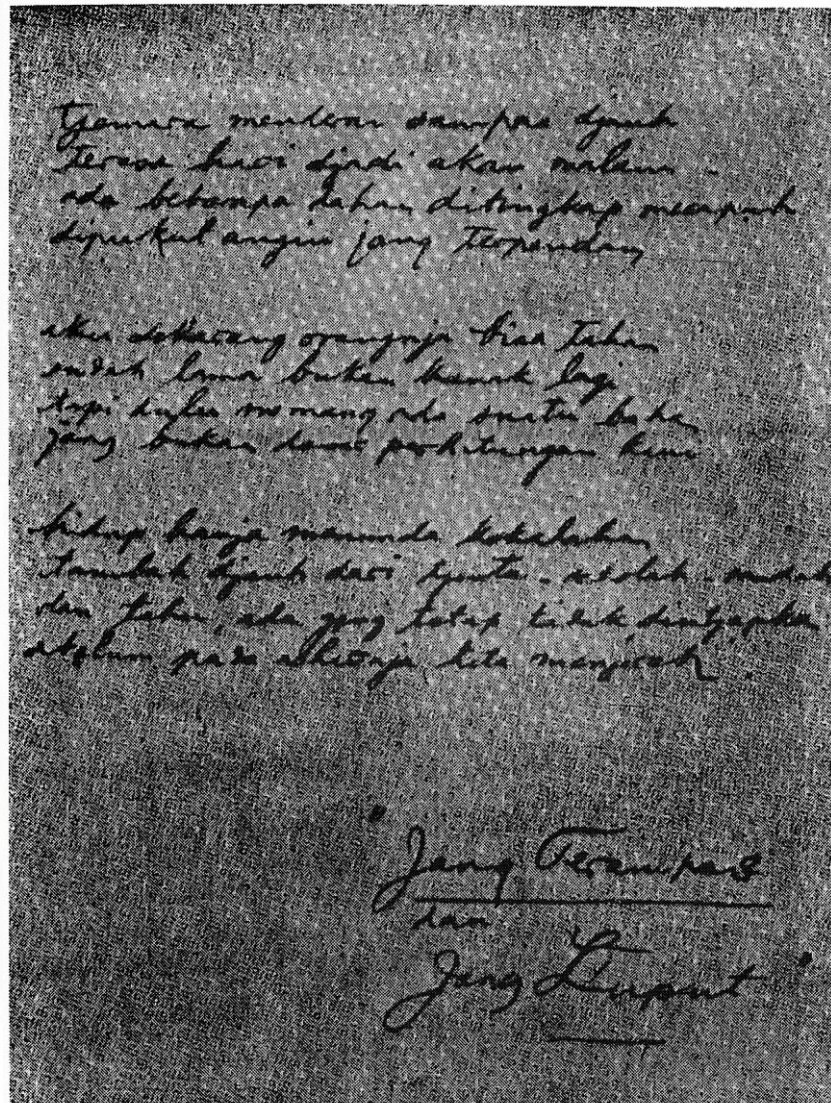 Tjemara menderai sampai djauh
Terasa hari djadi akan malam -
ada beberapa dahan ditingkap merapuh
dipukul angin jang terpendam
aku sekarang orangnja bisa tahan
sudah lama bukan kanak lagi
tapi dulu memang ada suatu bahan
jang bukan dasar perhitungan kini
hidup hanja menunda kekalahan
tambah djauh dari tjinta - sekolah - rendah
dan tahu, ada jang tetap tidak diutjapkan
sebelum pada achirnja kita menjerah .
"Jang Terampas
dan
Jang Luput"